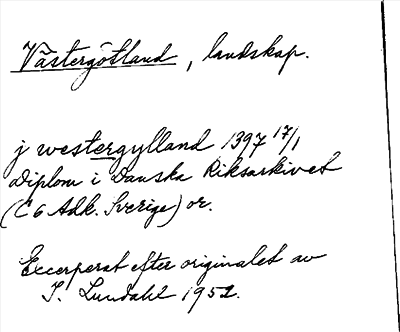 Västergötland, landskap.
j westergylland 1397 17/1
Diplom i Danska Riksarkivet
(C6 Adk. Sverige) or.
Excerperat efter originalet av
I. Lundahl 1952.